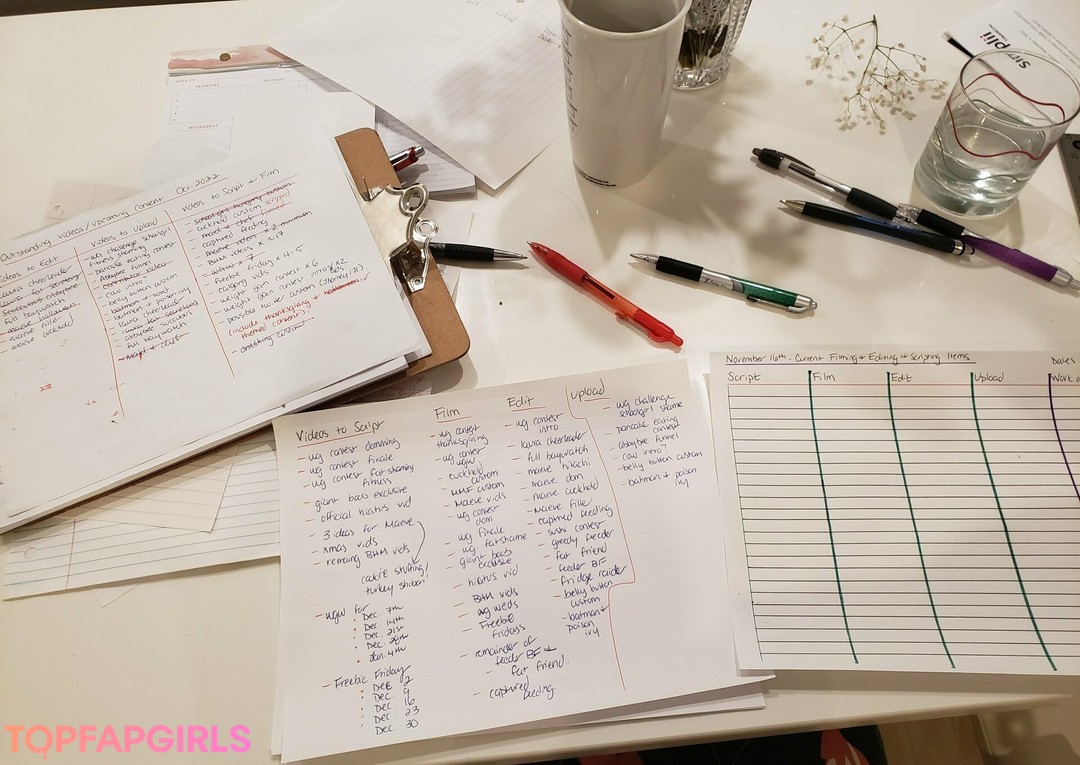 Outstanding Videos/Upcoming Content Oct 2022
Videos to Edit
full baywatch
maeve cuckhold
Videos to Upload
wg challenge schoolgirl
fitness shaming
pancake eating contest
abbytee funnel
cow intro?
belly button custom
batman + poison ivy
laura cheerleader
abbytee succubus
full baywatch
Videos to Script + Film
cuckhold custom scripted
captured feeding
BHM videos x 17
freebie friday x 4-5
category vids
weight gain contest x 6
weight gain contest intro/x2
(include thanksgiving + halloween
themed content)
Simplii
Videos to Script
- wg contest domming
- wg contest finale
- wg contest fat shaming
fitness
- giant boobs exclusive
- official hiatus vid
- 3 ideas for Maeve
- xmas vids
- remaining BHM vids
cookie stuffing/
turkey shiban
- wgw for
Dec. 7th
Dec. 14th
Dec. 21st
Dec. 28th
Jan. 4th
- Freebie Friday
Dec 2
Dec. 9
Dec. 16
Dec. 23
Dec 30
Film
- wg contest
thanksgiving
- wg contest
wgw
- cuckhold
custom
- MMF custom
- Maeve vids
- wg contest
dom
- wg finale
- wg fatshame
- giant boobs
exclusive
- hiatus vid
- BHM vids
- wg weds
- Freebie
Fridays
- remainder of
feeder BF +
- fat friend.
- captured
feeding.
Edit
- wg contest
intro
- laura cheerleader
- full baywatch
- maeve hibachi
- maeve dom
- maeve cuckhold
- Maeve filler
- captured feeding
- sushi contest
- greedy feeder
- fat friend
- feeder BF
- fridge raider
- belly button
custom
- batman +
poison
ivy
Upload
- wg challenge
schoolgirl shame
- pancake eating
contest
- abbytee funnel
- cow intro?
- belly button custom
- batman + poison
ivy
November 16th - Current Filming + Editing + Scripting Items
Script
Film
Edit
Upload
Dates
Work o
TOPFAPGIRLS